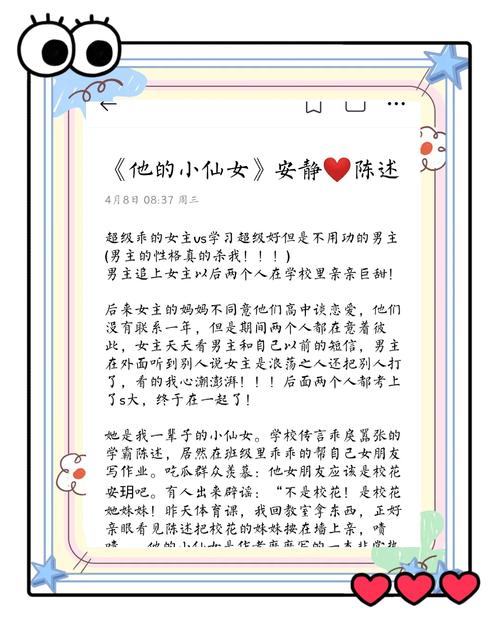 《他的小仙女》安静❤️陈述
4月8日 08:37 周三
超级乖的女主vs学习超级好但是不用功的男主
(男主的性格真的杀我！！！)
男主追上女主以后两个人在学校里亲亲巨甜！
后来女主的妈妈不同意他们高中谈恋爱，他们
没有联系一年，但是期间两个人都在意着彼
此，女主天天看男主和自己以前的短信，男主
在外面听到别人说女主是浪荡之人还把别人打
了，看的我心潮澎湃！！！后面两个人都考上
了s大，终于在一起了！
她是我一辈子的小仙女。学校传言乖戾嚣张的
学霸陈述，居然在班级里乖乖的帮自己女朋友
写作业。吃瓜群众羡慕：他女朋友应该是校花
安玥吧。有人出来辟谣：“不是校花！是校花
她妹妹！昨天体育课，我回教室拿东西，正好
亲眼看见陈述把校花的妹妹按在墙上亲，啧
啧。他的小仙女是作者